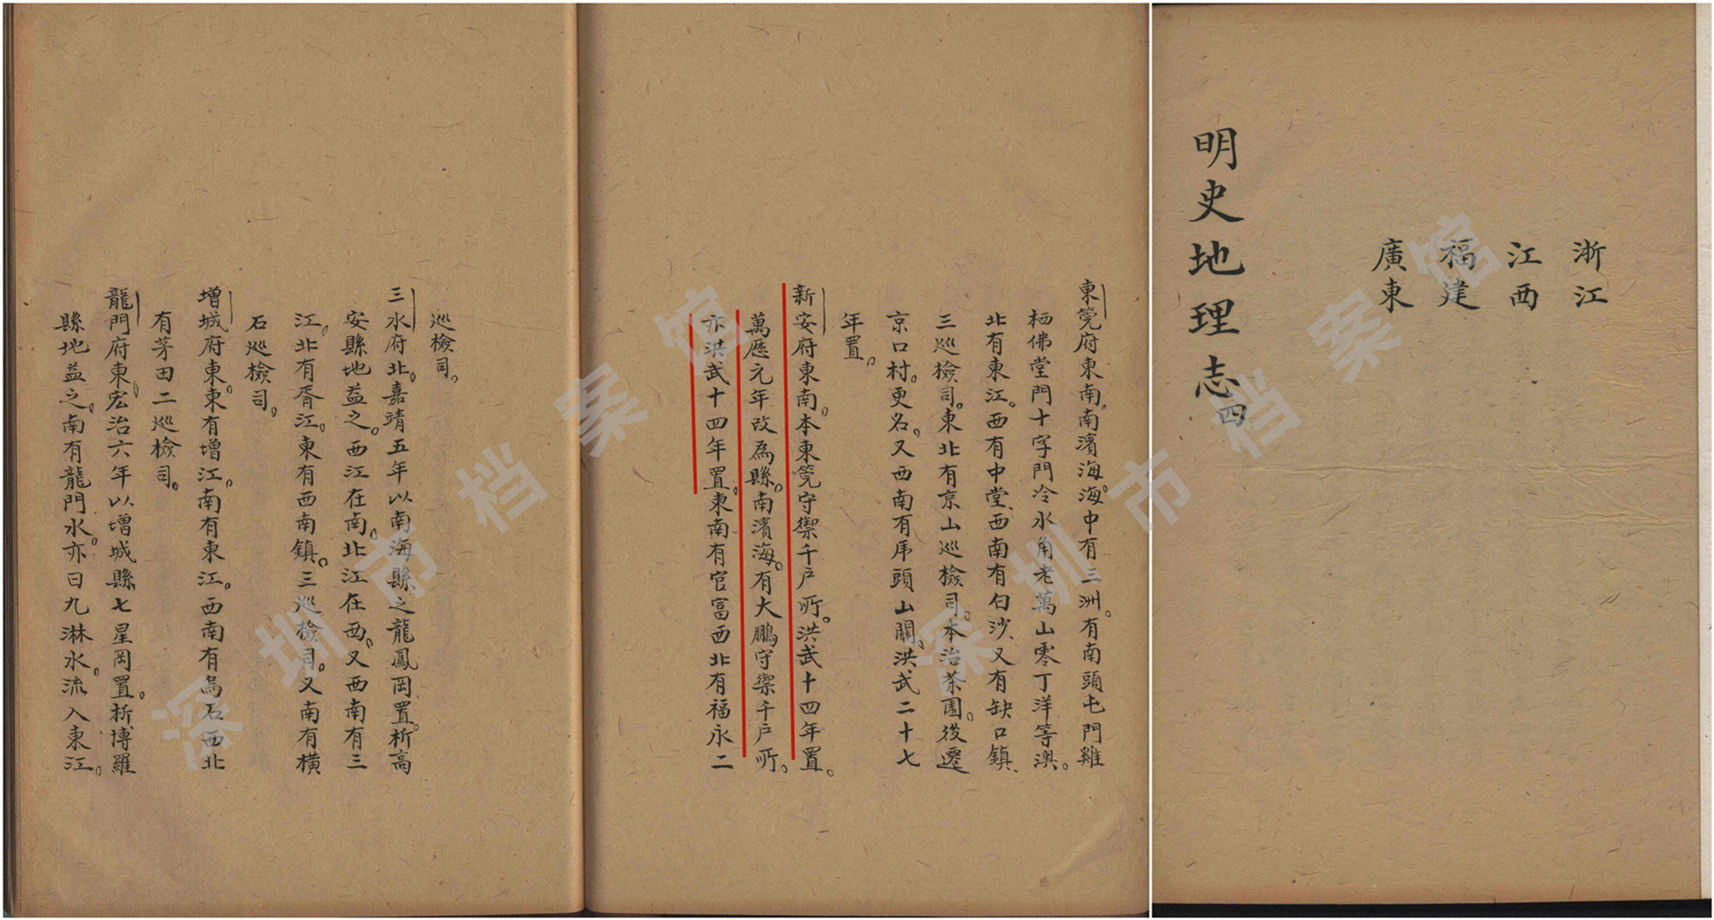 浙江
江西
福建
廣東
明史地理志四
東筦府東南。南濱海。海中有三洲。有南頭屯門雞
栖佛堂門十字門冷水角老萬山零丁洋等澳。
北有東江。西有中堂、西南有白沙、又有缺口鎮、
三巡檢司。東北有京山巡檢司。本治茶園。後遷
京口村。更名。又西南有虎頭山關。洪武二十七
年置。
新安府東南。本東筦守禦千戶所。洪武十四年置。
萬歷元年改為縣。南濱海。有大鵬守禦千戶所。
亦洪武十四年置。東南有官富西北有福永二
巡檢司。
三水府北。嘉靖五年以南海縣之龍鳳岡置。析高
安縣地益之。西江在南。北江在西。又西南有三
江。北有胥江。東有西南鎮。三巡檢司。又南有橫
石巡檢司。
增城府東。東有增江。南有東江。西南有烏石西北
有茅田二巡檢司。
龍門府東。宏治六年以增城縣七星岡置。析博羅
縣地益之。南有龍門水。亦曰九淋水。流入東江。
深圳市档案馆
深圳市档案馆